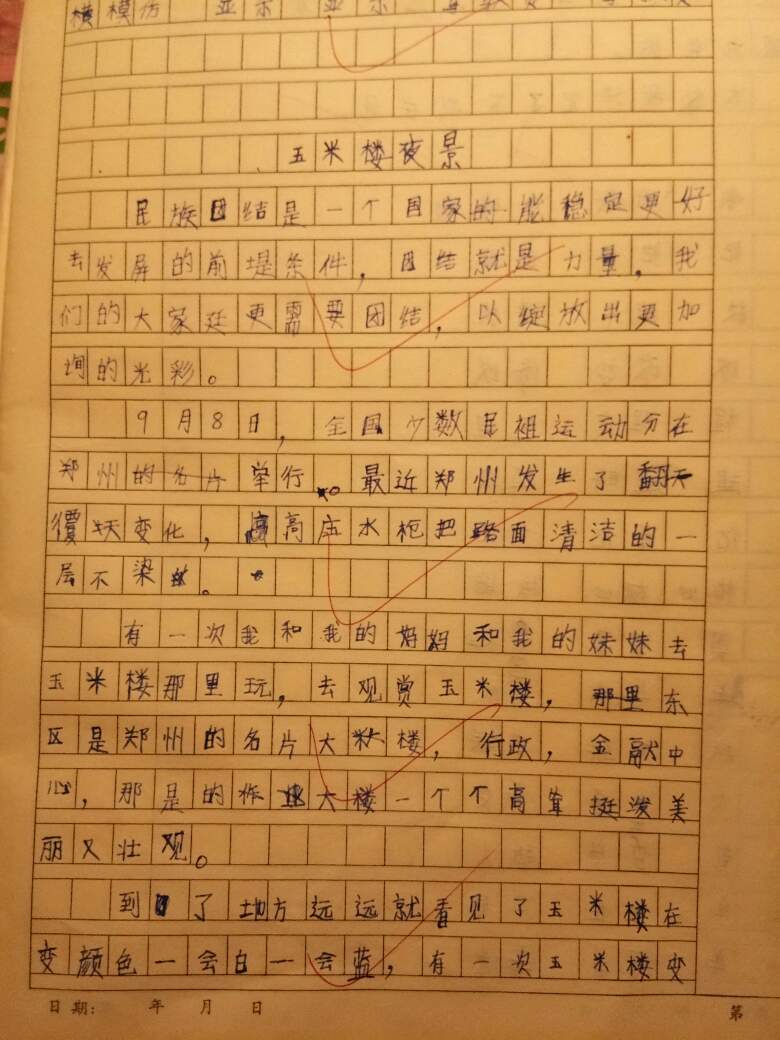 模仿
玉米楼夜景
民族团结是一个国家的能稳定更好
去发屏的前堤条件，团结就是力量，我
们的大家廷更需要团结，以绽放出更加
的光彩。
9月8日，全国少数民祖运动分在
郑州的名片举行。最近郑州发生了翻天
覆变化，高庄水枪把路面清洁的一
层不染。
有一次我和我的妈妈和我的妹妹去
玉米楼那里玩，去观赏玉米楼，那里东
区是郑州的名片大楼，行政，金融中
心，那是的作业大楼一个个高耸挺泼美
丽又壮观。
到了地方远远就看见了玉米楼在
变颜色一会白一会蓝，有一次玉米楼变
日期： 年 月 日
第